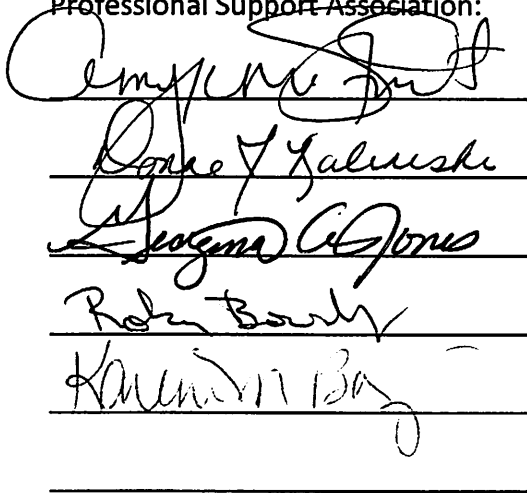 Professional Support Association:
Amy M
Donne Y Kaliuski
Georgina A Jones
Robin
Karen M